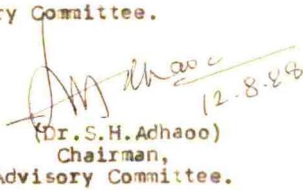 ry Committee.
Adhaoo
12.8.88
(Dr.S.H.Adhaoo)
Chairman,
Advisory Committee.